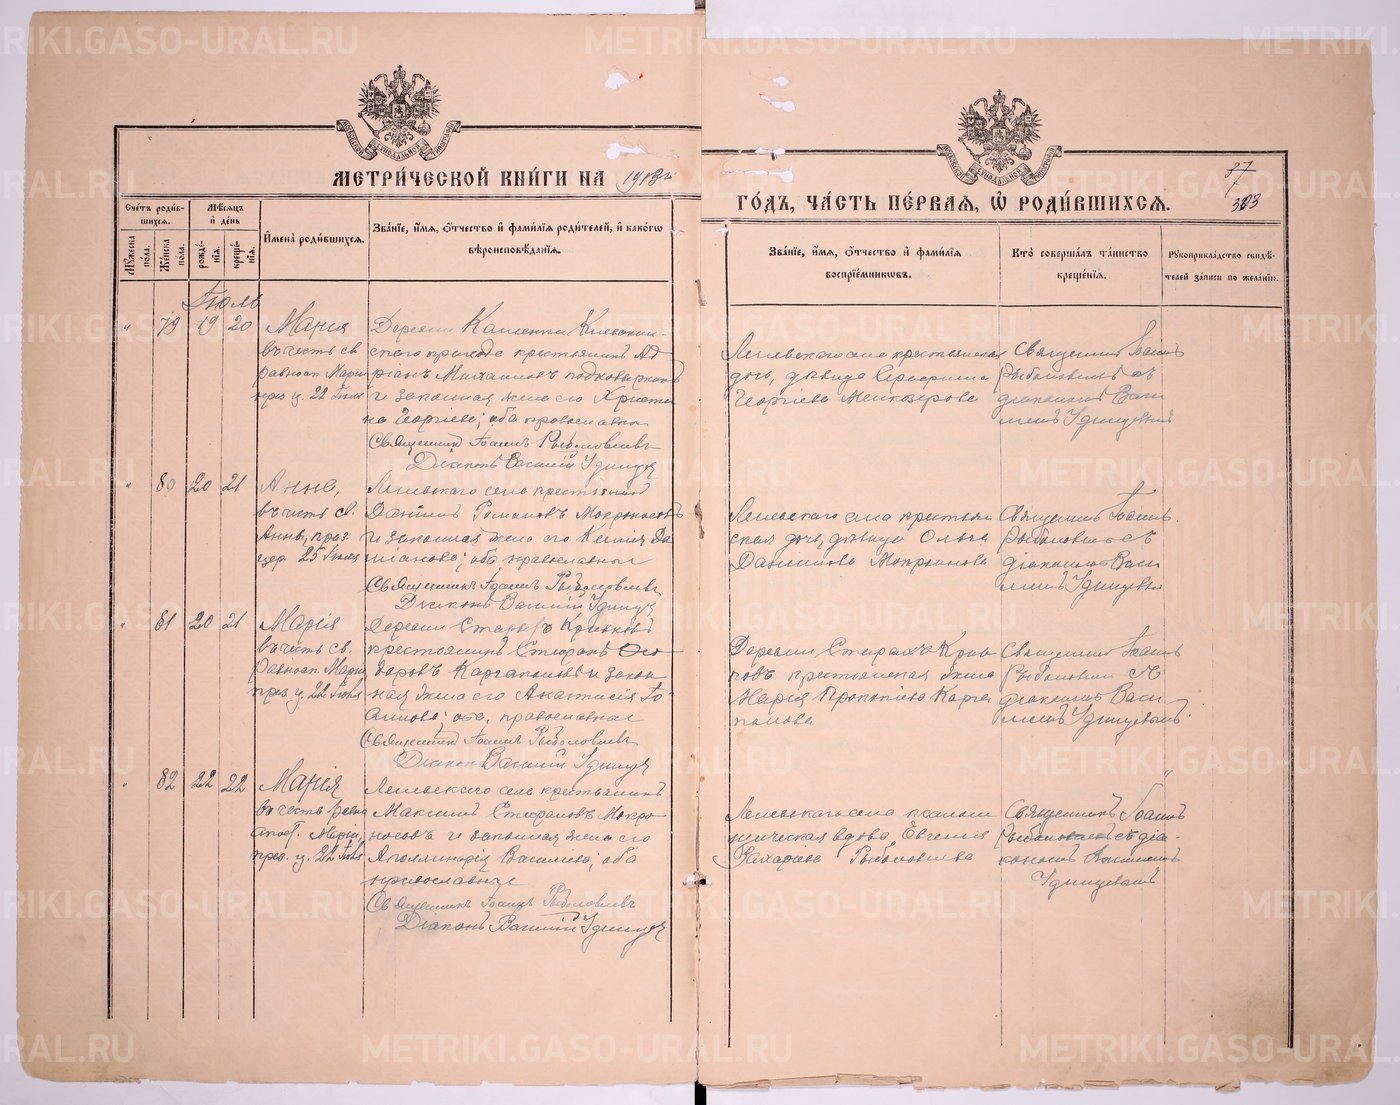 МЕТРИ́ЧЕСКОЙ КНИ́ГИ НА 1913й
ГО́ДЪ, ЧА́СТЬ ПЕ́РВАЯ, Ѽ РОДИ́ВШИХСЯ.
37
303
Сче́тъ роди́вшихся.
Мѣ́сяцъ и́ де́нь
Му́жеска по́ла.
Же́нска по́ла.
рожде́нія.
креще́нія.
И҆мена̀ роди́вшихся.
Зва́ніе, и҆́мя, ѻ҆́тчество и҆ фами́лія роди́телей, и҆ како́гѡ
вѣроисповѣ́данія.
Зва́ніе, и҆́мя, ѻ҆́тчество и҆ фами́лія
воспріе́мникѡвъ.
Кто̀ соверша́лъ та́инство
креще́нія.
Рукоприкла́дство свидѣ́-
телей за́писи по жела́нію.
Іюль
" 79 19 20
Марія
въ честь св.
равноап. Маріи
празд. 22 Іюля
Деревни
скаго прихода крестьянинъ Ад-
ріанъ Михаиловъ
и законная жена его Христи
на Георгиева; оба православные
Священникъ Іоаннъ Рыболовлевъ
Діаконъ Василій Удинцев
села крестьянская
дочь, девица Серафима
Георгиева
Священникъ Іоаннъ
Рыболовлевъ съ
діакономъ Васи
ліемъ Удинцевымъ
" 80 20 21
Анна,
въ честь св.
Анны, празд
25 Іюля
села крестьянинъ
Даніилъ Романовъ Мокроносовъ
и законная жена его Ксенія Да
міанова; оба православные
Священникъ Іоаннъ Рыболовлевъ
Діаконъ Василій Удинцев
села крестьян
ская дочь, девица Ольга
Даниилова Мокроносова
Священникъ Іоаннъ
Рыболовлевъ съ
діакономъ Васи
ліемъ Удинцевым
" 81 20 21
Марія
въ честь св.
равноап. Маріи
празд. 22 Іюля
Деревни
крестьянинъ Стефанъ
Каргаполовъ и закон
ная жена его Анастасія Іо-
аннова; оба православные
Священникъ Іоаннъ Рыболовлевъ
Діаконъ Василій Удинцев
Деревни
крестьянская жена
Марія Прокопіева Карга
полова
Священникъ Іоаннъ
Рыболовлевъ съ
діакономъ Васи
ліемъ Удинцевымъ.
" 82 22 22
Марія
въ честь равно
апост. Маріи,
празд. 22 Іюля
села крестьянинъ
Максимъ Стефановъ Мокро
носовъ и законная жена его
Аполлинарія Васильева; оба
православные
Священникъ Іоаннъ Рыболовлевъ
Діаконъ Василій Удинцев
села псалом
щическая вдова Евгенія
Захаріева Рыболовлева
Священникъ Іоаннъ
Рыболовлевъ съ діа-
кономъ Василіемъ
Удинцевымъ
METRIKI.GASO-URAL.RU